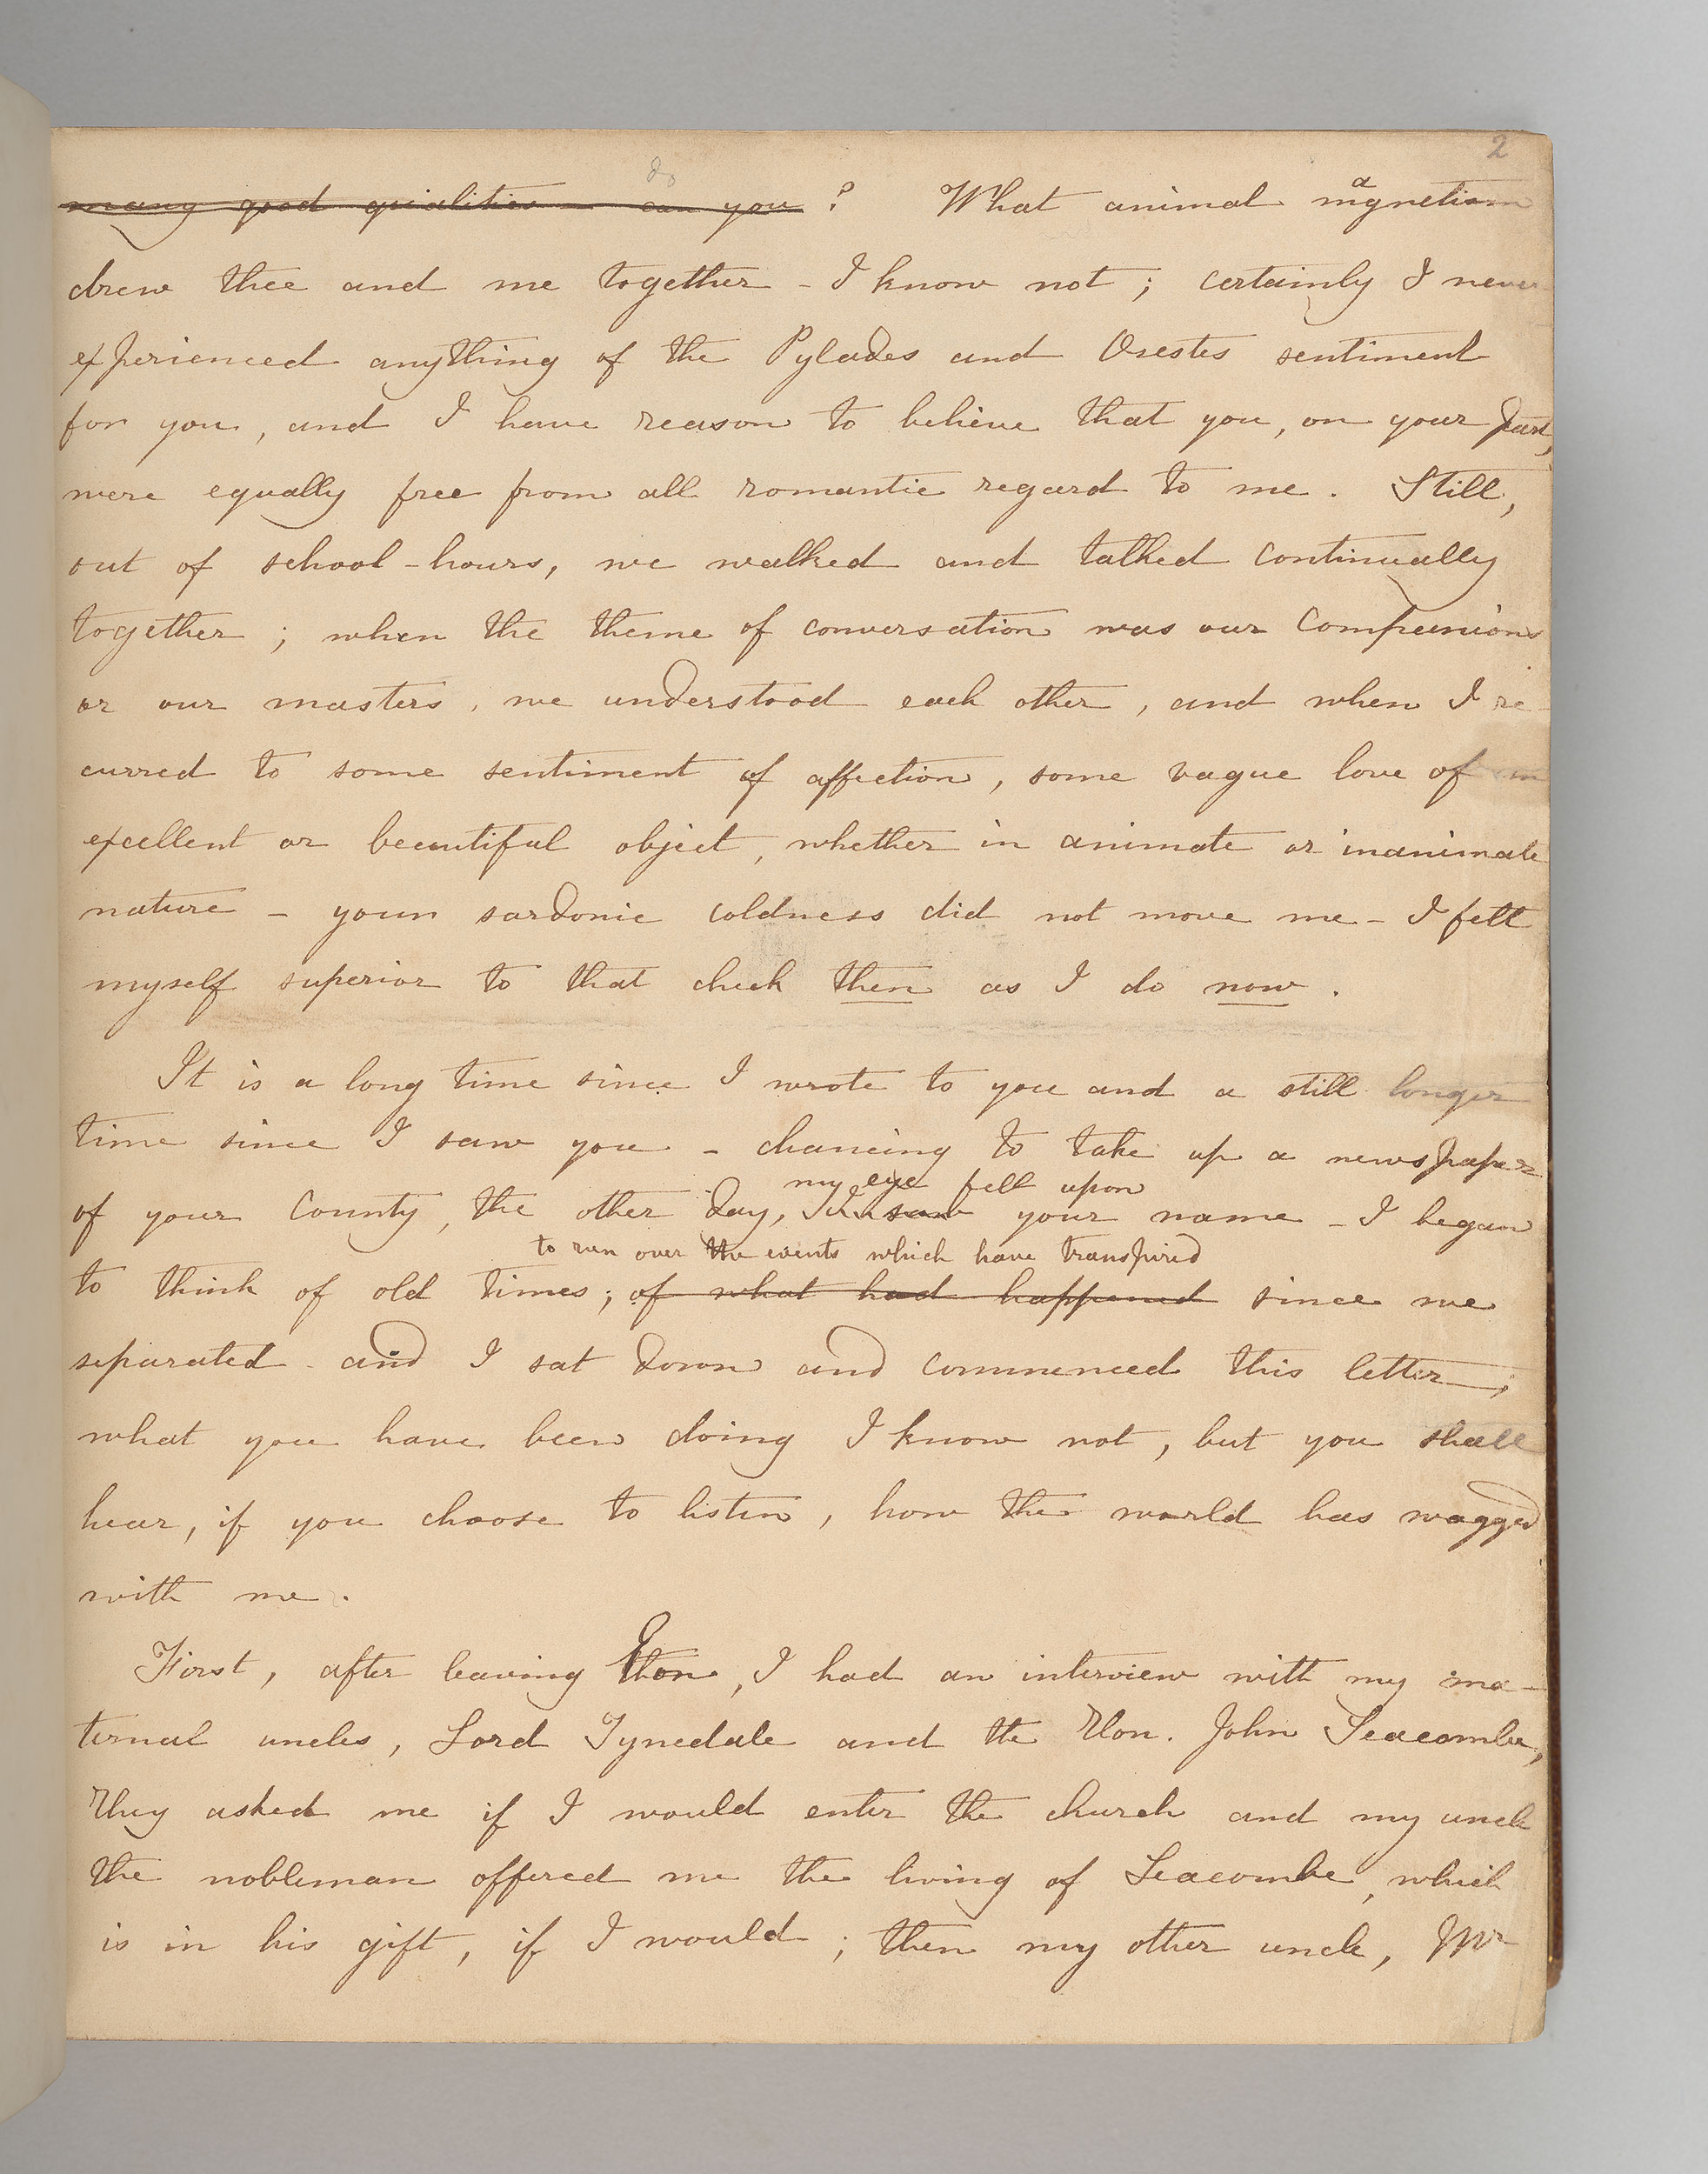 2
do
many good qualities — can you ? What animal magnetism
drew thee and me together - I know not ; certainly I never
experienced anything of the Pylades and Orestes sentiment
for you, and I have reason to believe that you, on your part,
were equally free from all romantic regard to me. Still,
out of school-hours, we walked and talked continually
together ; when the theme of conversation was our Companions
or our masters, we understood each other, and when I re-
curred to some sentiment of affection, some vague love of an
excellent or beautiful object, whether in animate or inanimate
nature - your sardonic coldness did not move me - I felt
myself superior to that check then as I do now.
It is a long time since I wrote to you and a still longer
time since I saw you - chancing to take up a newspaper
my eye fell upon
of your County, the other day, I saw your name - I began
to run over the events which have transpired
to think of old times; of what had happened since we
separated - and I sat down and commenced this letter;
what you have been doing I know not, but you shall
hear, if you choose to listen, how the world has wagged
with me.
First, after leaving Eton, I had an interview with my ma-
ternal uncles, Lord Tynedale and the Hon. John Seacombe,
They asked me if I would enter the church and my uncle
the nobleman offered me the living of Seacombe, which
is in his gift, if I would ; then my other uncle, Mr